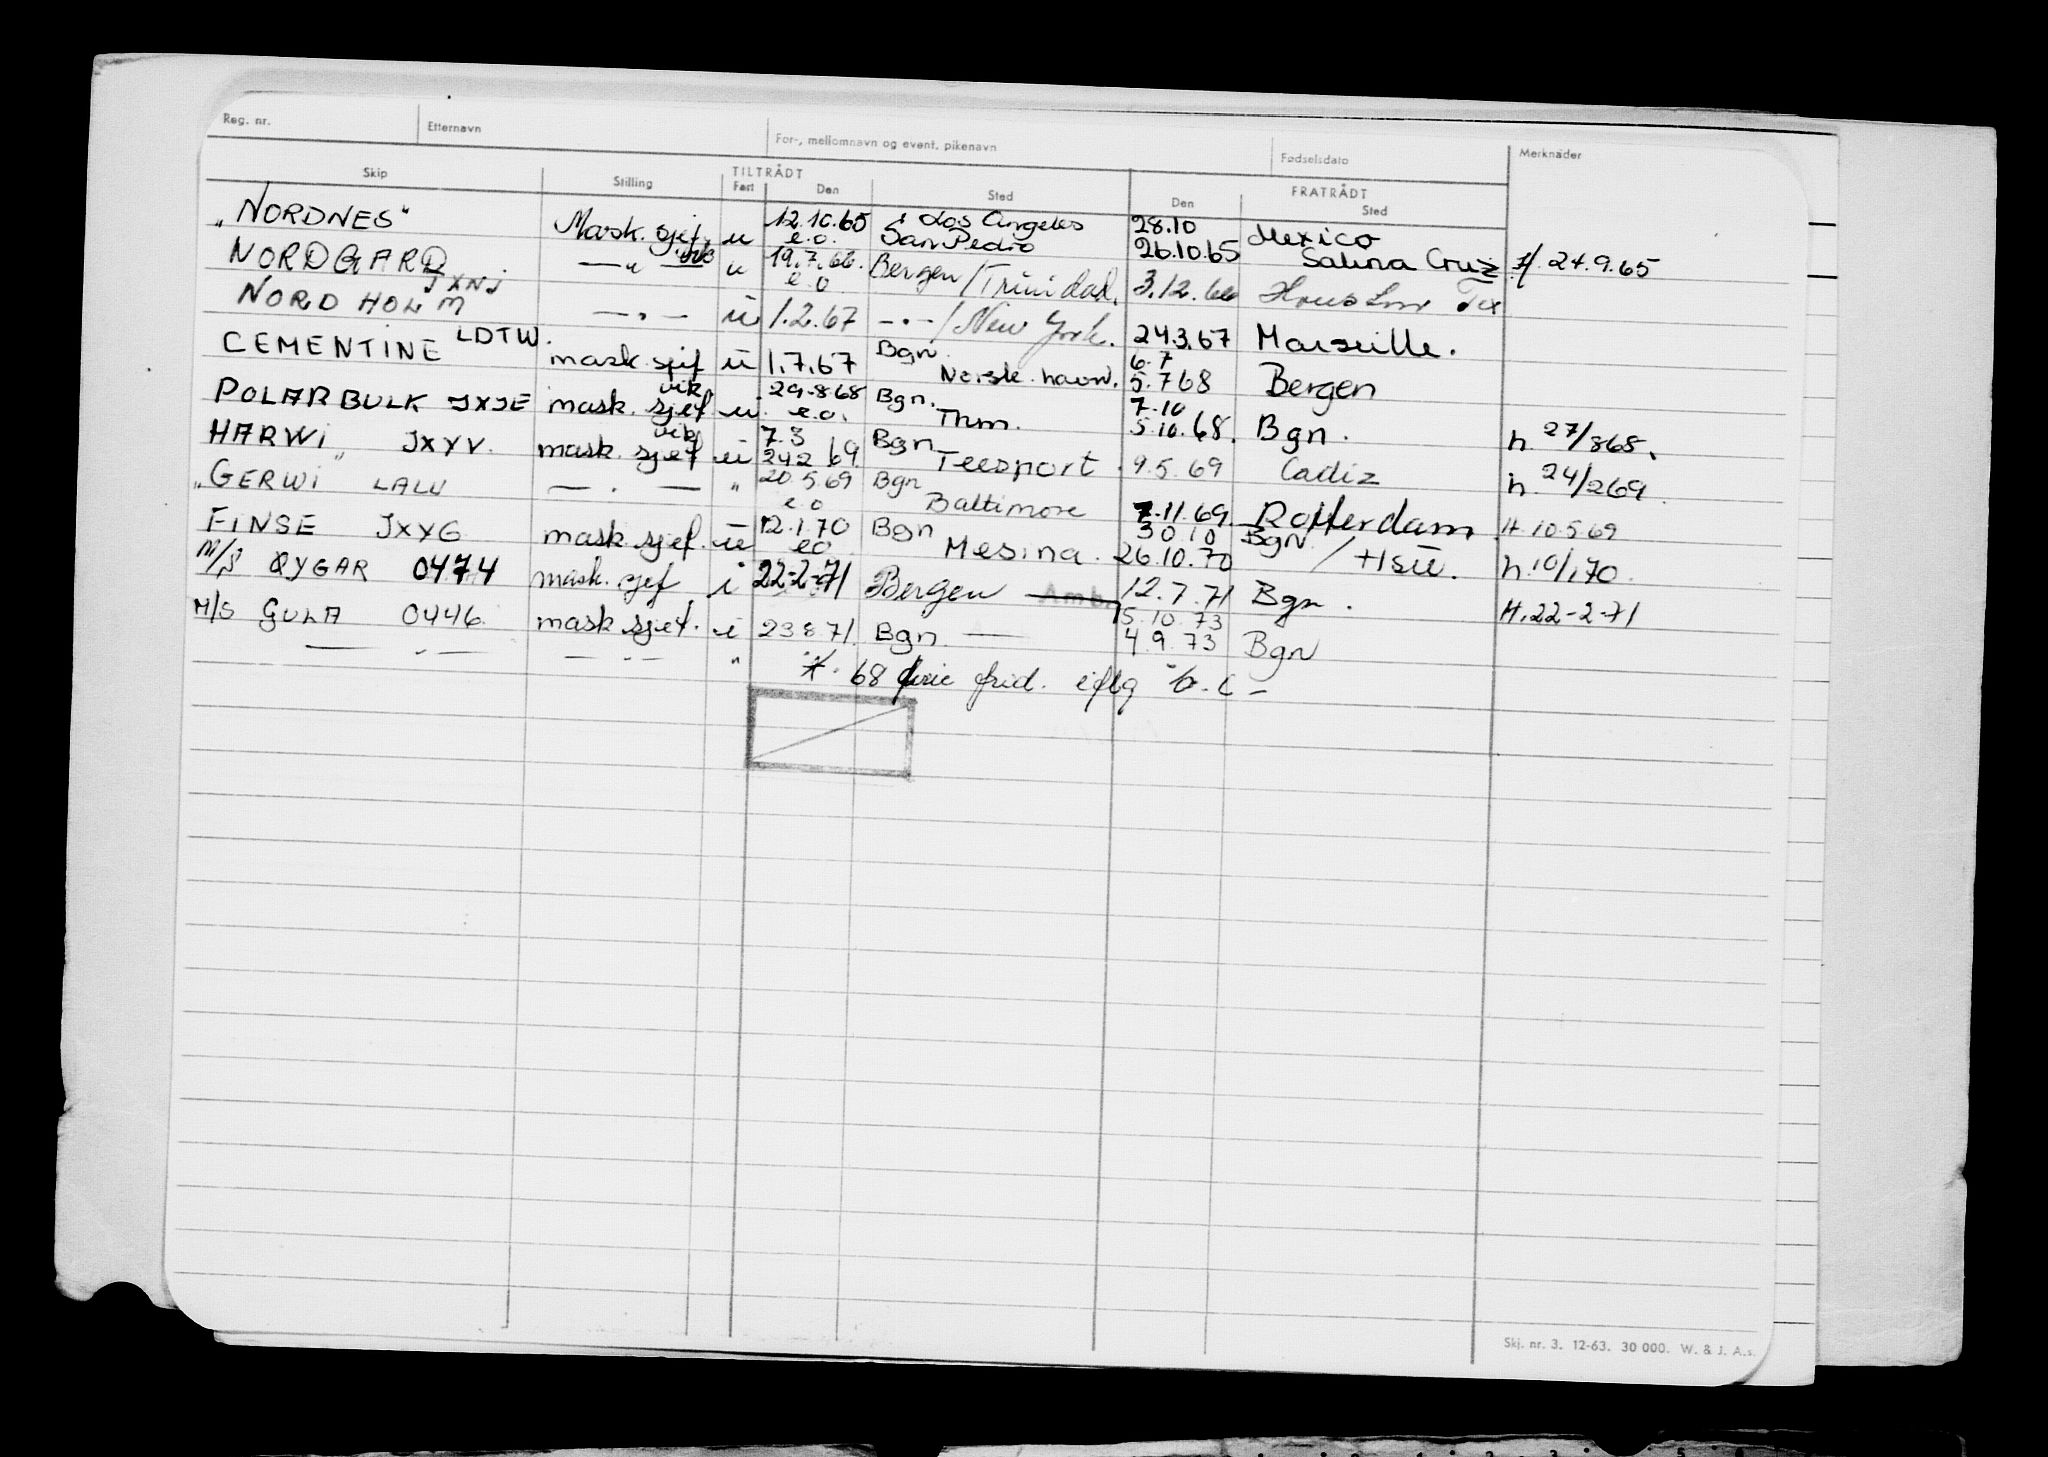 Reg. nr. Etternavn For-, mellomnavn og event. pikenavn Fødselsdato Merknader
Skip Stilling TILTRÅDT Fart Den Sted FRATRÅDT Den Sted
"NORDNES" Mask. sjef, u 12.10.65 e.o. Los Angeles San Pedro 28.10 26.10.65 Mexico Salina Cruz H. 24.9.65
NORDGARD JXNJ —"— vik u 19.7.66. e.o Bergen/Trinidad. 3.12.66 Houston Tex
NORDHOLM —"— u 1.2.67 —"—/New York. 24.3.67 Marseille.
CEMENTINE LDTW. mask. sjef u 1.7.67 Bgn. Norsk. havn. 6.7 5.768 Bergen
POLARBULK JXJE mask. sjef vik u. 29.868 e.o. Bgn. Thm. 7.10 5.10.68. Bgn. h. 27/868.
HARWI" JXYV. mask. sjef vik u 7.3 242 69. Bgn Teesport. 9.5.69 Cadiz h. 24/269.
"GERWI LALU —"— " 20.5.69 e.o Bgn Baltimore 7.11.69 Rotterdam H. 10.5.69
FINSE JXYG mask. sjef. u 12.1.70 eo Bgn Mesina. 30 10 26.10.70 Bgn / h. 10/170.
M/S QYGAR 0474 mask. sjef i 22-2-71 Bergen — 12.7.71 Bgn. H. 22-2-71
M/S GULA 0446 mask sjef. i 23871. Bgn — 15.10.73 4.9.73 Bgn
—"— —"— " 68
Skj. nr. 3. 12-63. 30 000. W. & J. A.s.